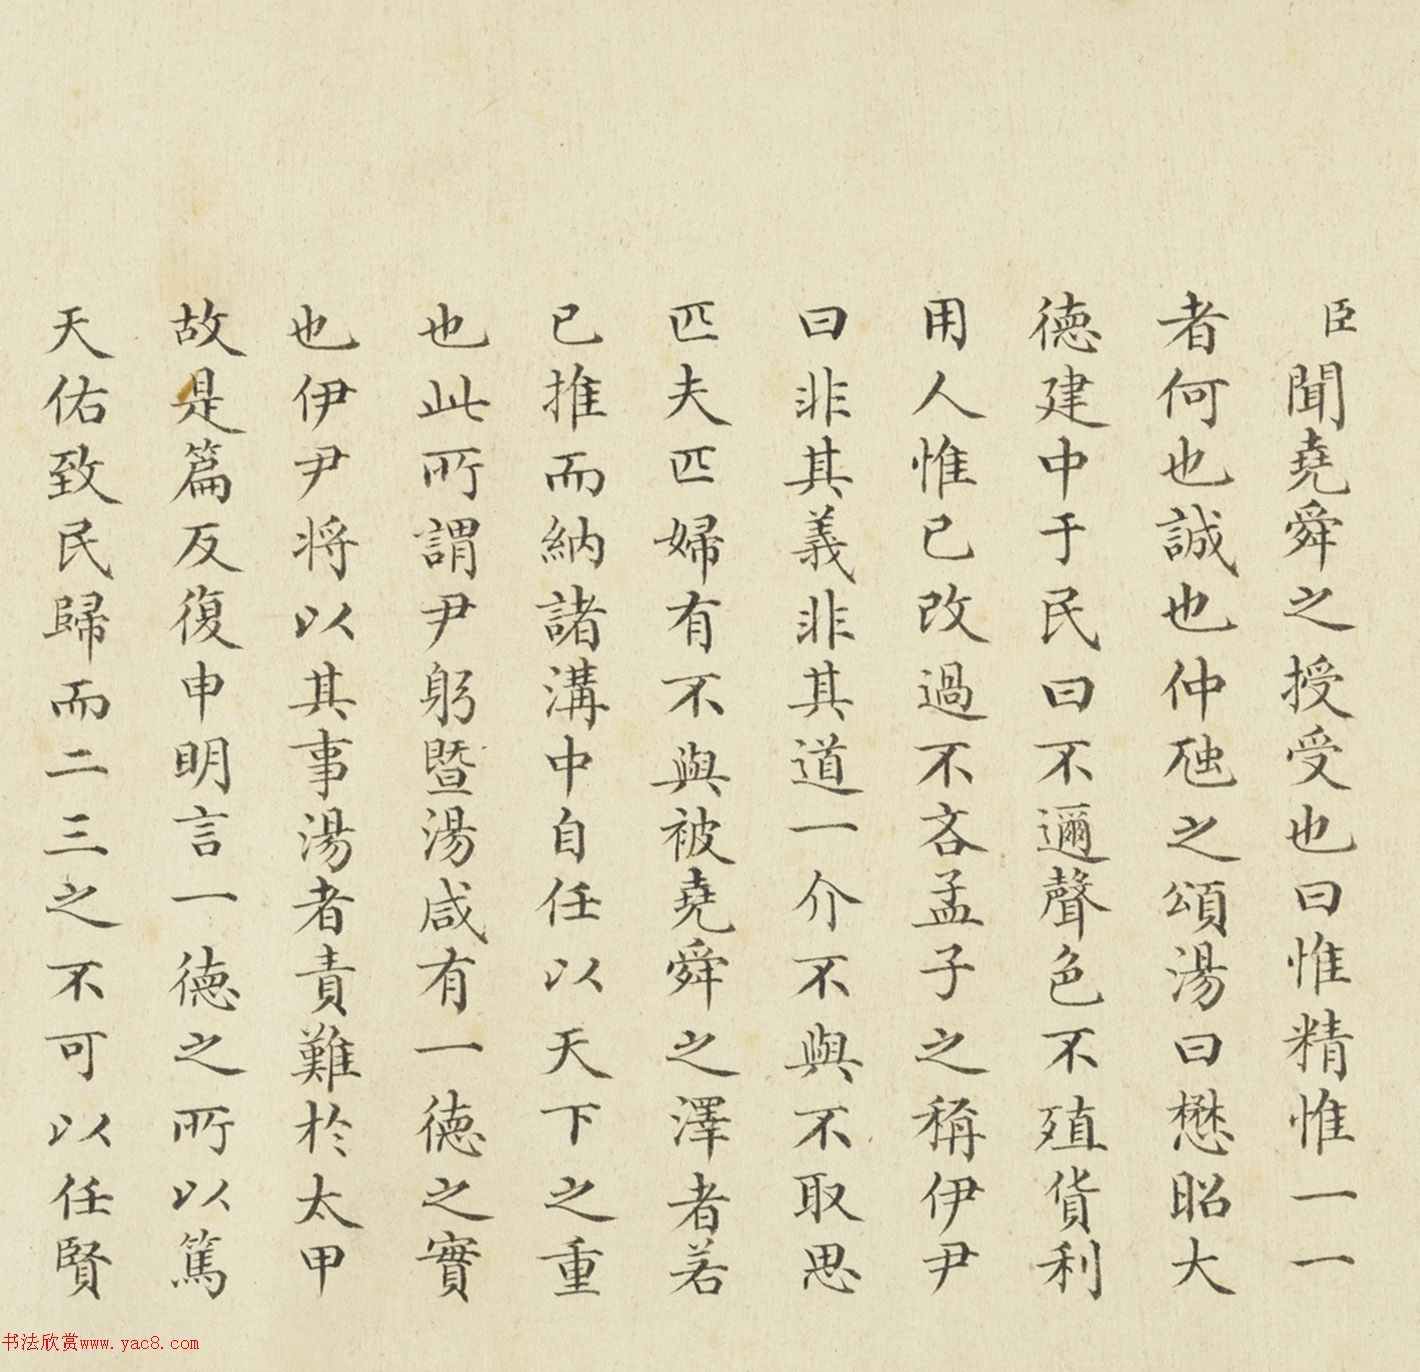 臣聞堯舜之授受也曰惟精惟一一
者何也誠也仲虺之頌湯曰懋昭大
德建中于民曰不邇聲色不殖貨利
用人惟已改過不吝孟子之稱伊尹
曰非其義非其道一介不與不取思
匹夫匹婦有不與被堯舜之澤者若
已推而納諸溝中自任以天下之重
也此所謂尹躬暨湯咸有一德之實
也伊尹将以其事湯者責難於太甲
故是篇反復申明言一德之所以篤
天佑致民歸而二三之不可以任賢
书法欣赏www.yac8.com